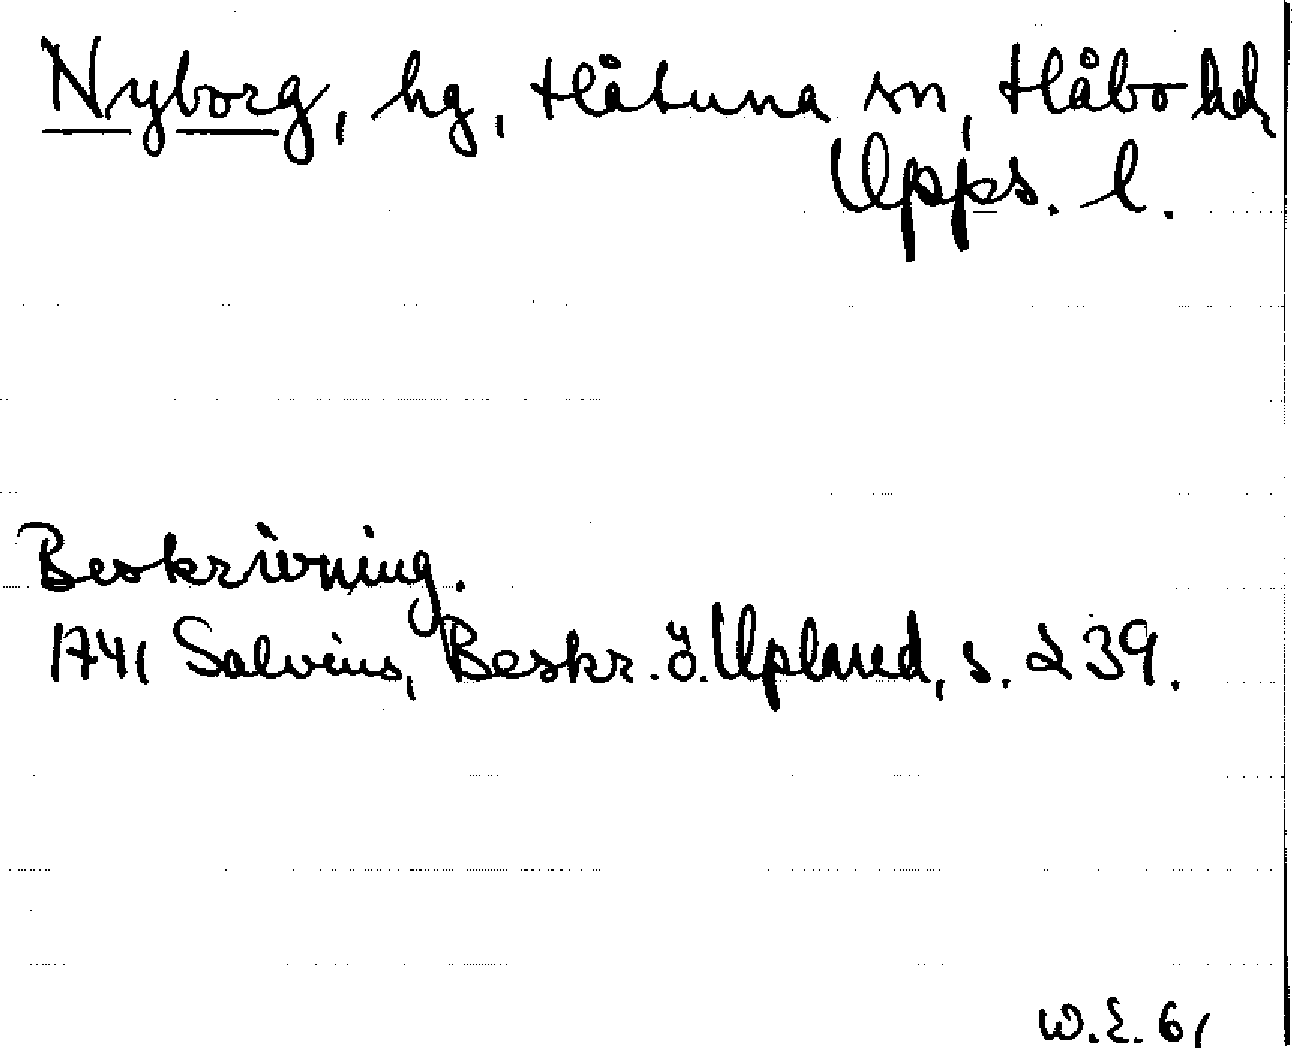 Nyborg, hg, Håtuna sn, Håbo hd
Upps. l.
Beskrivning.
1741 Salvius, Beskr. ö. Upland, s. 239.
W.E. 61